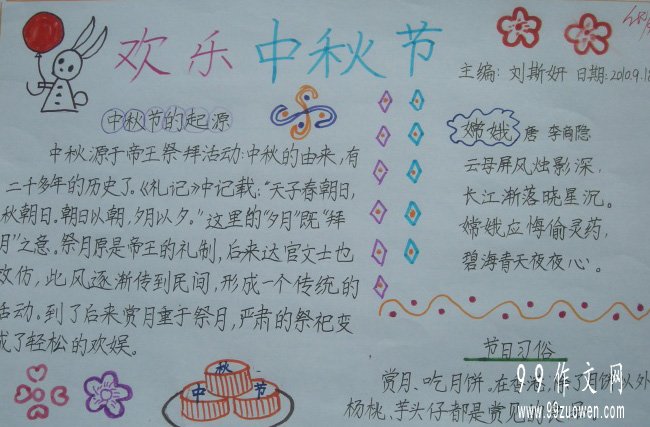 欢乐中秋节
主编：刘斯妍 日期：2010.9.18
中秋节的起源
中秋源于帝王祭拜活动：中秋的由来，有
二千多年的历史了。《礼记》中记载：“天子春朝日，
秋朝日。朝日以朝，夕月以夕。”这里的“夕月”既“拜
月”之意。祭月原是帝王的礼制，后来达官文士也
效仿，此风逐渐传到民间，形成一个传统的
活动。到了后来赏月重于祭月，严肃的祭祀变
成了轻松的欢娱。
中 秋 节
嫦娥 唐 李商隐
云母屏风烛影深，
长江渐落晓星沉。
嫦娥应悔偷灵药，
碧海青天夜夜心。
节日习俗
赏月、吃月饼，在香港，除了月饼以外
杨桃，芋头仔都是赏见的
99作文网
www.99zuowen.com